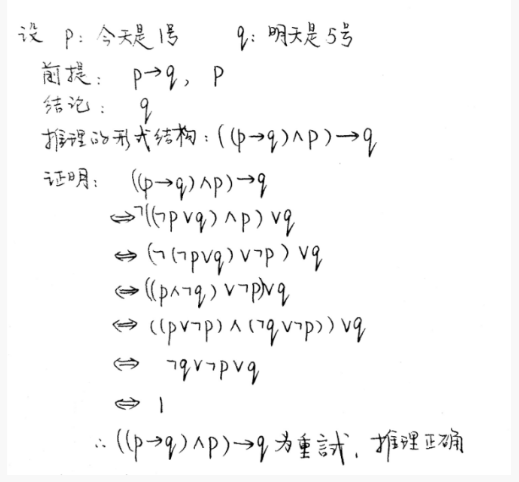 设 p: 今天是1号 q: 明天是5号
前提: p→q, p
结论: q
推理的形式结构: ((p→q)∧p)→q
证明: ((p→q)∧p)→q
⇔¬((¬p∨q)∧p)∨q
⇔(¬(¬p∨q)∨¬p)∨q
⇔((p∧¬q)∨¬p)∨q
⇔((p∨¬p)∧(¬q∨¬p))∨q
⇔ ¬q∨¬p∨q
⇔ 1
∴((p→q)∧p)→q为重言式, 推理正确